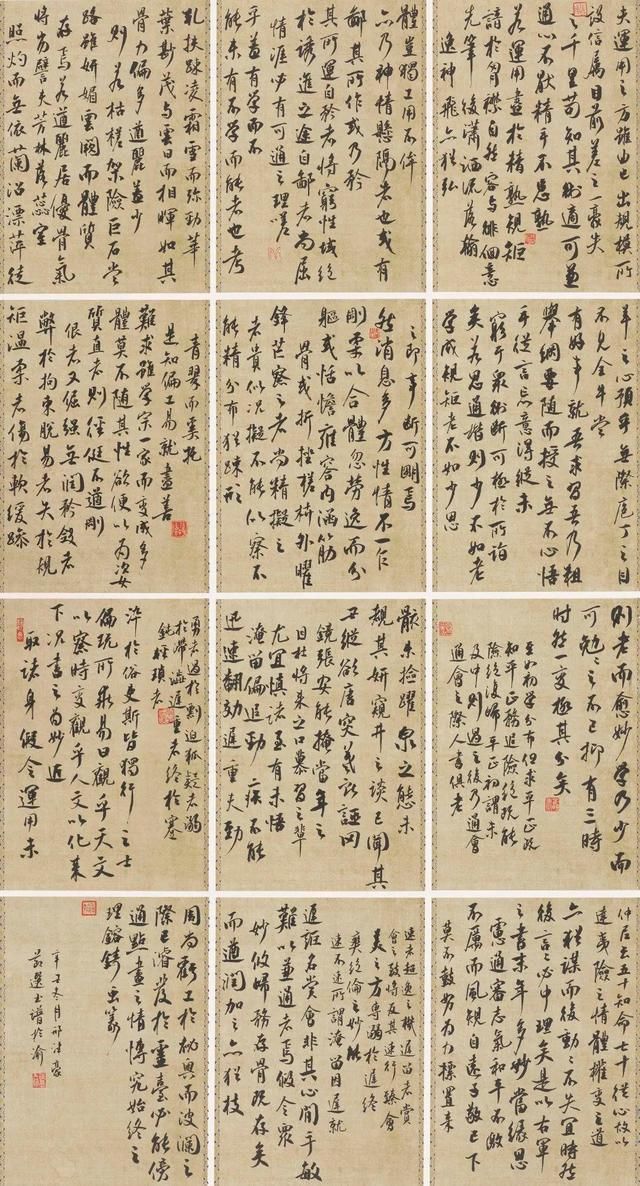 夫運用之方雖由己出規模所
設信屬目前差之一豪失
之千里苟知其術適可兼
通心不猒精手不忘熟
若運用盡於精熟規矩
諳於胸襟自然容與徘徊意
先筆後瀟洒流落翰
逸神飛亦猶弘
羊之心預乎無際庖丁之
不見全牛嘗
有好事就吾求習吾乃粗
舉綱要隨而授之無不心悟
手從言忘意得縱未
窮於眾術斷可極於所詣
矣若思通楷則少不如老
學成規矩老不如少思
則老而愈妙學乃少而
可勉勉之不已抑有三時
時然一變極其分矣
至如初學分布但求平正既
知平正務追險絕既能
險絕復歸平正初謂未
及中則過之後乃通會
通會之際人書俱老
仲尼云五十知命七十從心故以
達夷險之情體權變之道
亦猶謀而後動動不失宜時然
後言言必中理矣是以右軍
之書末年多妙當緣思
慮通審志氣和平不激
不厲而風規自遠子敬已下
莫不鼓努為力標置成
體豈獨工用不侔
亦乃神情懸隔者也或有
鄙其所作或乃矜
其所運自矜者將窮性域絕
於誘進之途自鄙者尚屈
情涯必有可通之理嗟
乎蓋有學而不
能未有不學而能者也考
之即事斷可明焉
然消息多方性情不一乍
剛柔以合體忽勞逸而分
軀或恬憺雍容內涵筋
骨或折挫槎枿外曜
鋒芒察之者尚精擬之
者貴似況擬不能似察不
能精分布猶疎形
骸未檢躍泉之態未
覩其妍窺井之談已聞其
醜縱欲唐突羲獻誣罔
鍾張安能掩當年之
目杜將來之口慕習之輩
尤宜慎諸至有未悟
淹留偏追勁疾不能
迅速翻效遲重夫勁
速者超逸之機遲留者賞
會之致將反其速行臻會
美之方專溺於遲終
爽絕倫之妙能
速不速所謂淹留因遲就
遲詎名賞會非其心閒手敏
難以兼通者焉假令眾
妙攸歸務存骨氣存矣
而遒潤加之亦猶枝
幹扶踈凌霜雪而彌勁華
葉茂與雲日而相暉如其
骨力偏多遒麗蓋少
則若枯槎架險巨石當
路雖妍媚雲闕而體質
存焉若遒麗居優骨氣
將劣譬夫芳林落蕊空
照灼而無依蘭沼漂萍徒
青翠而奚託
是知偏工易就盡善
難求雖學宗一家而變成多
體莫不隨其性欲便以為姿
質直者則俓侹不遒剛
佷者又倔強無潤矜斂者
弊於拘束脫易者失於規
矩溫柔者傷於軟緩躁
勇者過於剽迫狐疑者溺
於滯澁遲重者終於蹇
鈍輕瑣者
淬於俗吏斯皆獨行之士
偏玩所乖易曰觀乎天文
以察時變觀乎人文以化成
下況書之為妙近
取諸身假令運用未
周尚虧工於秘奧而波瀾之
際已濬發於靈臺必能傍
通點畫之情博究始終之
理鎔鑄蟲篆
辛丑冬月
節選書譜於渝